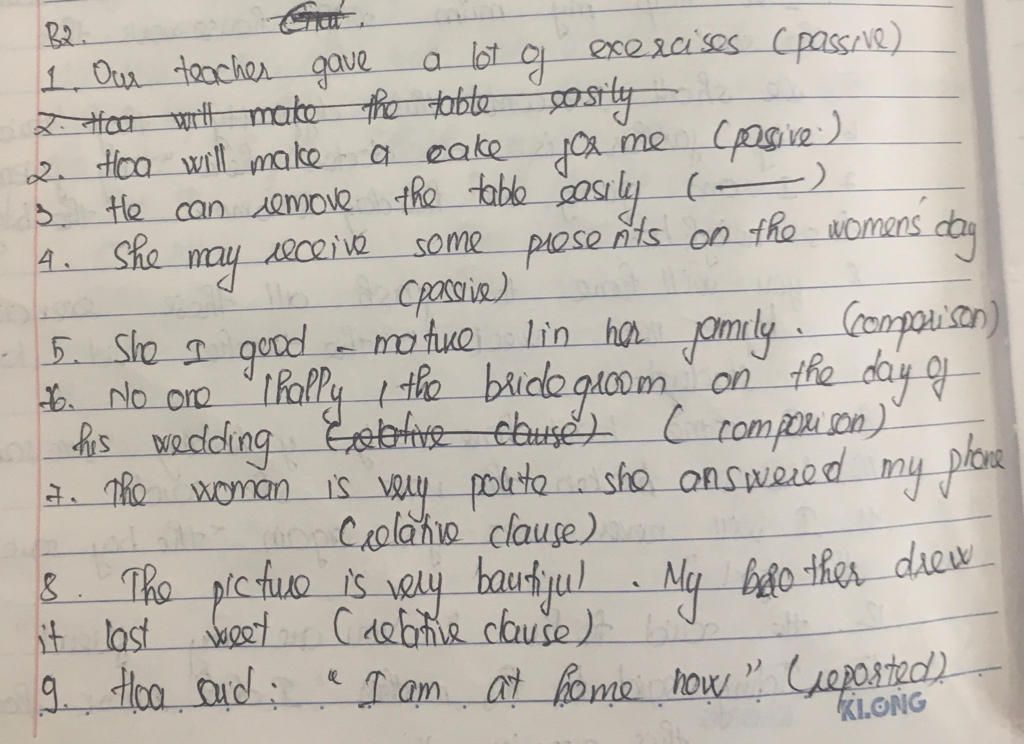 B2.
1. Our teacher gave a lot of exercises (passive)
2. Hoa will make the table easily
2. Hoa will make a cake for me (pasive.)
3 He can remove the table easily (———)
4. She may receive some presents on the womens' day
(passive)
5. She I good - nature I in her family. (comparison)
6. No one I happy I the bridegroom on the day of
his wedding (relative clause) (comparison)
7. The woman is very polite. she answered my phone
(relative clause)
8. The picture is very bautiful. My brother drew
it last weet (relative clause)
9. Hoa said: "I am at home now" (reported)
KLONG